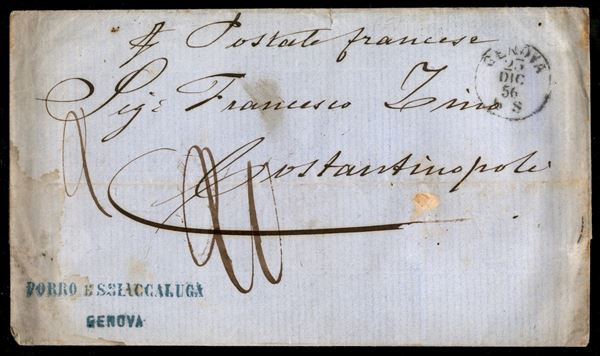 Postale francese
Sig: Francesco Zino
Costantinopoli
GENOVA
23
DIC
56
S
PORRO E SCIACCALUGA
GENOVA